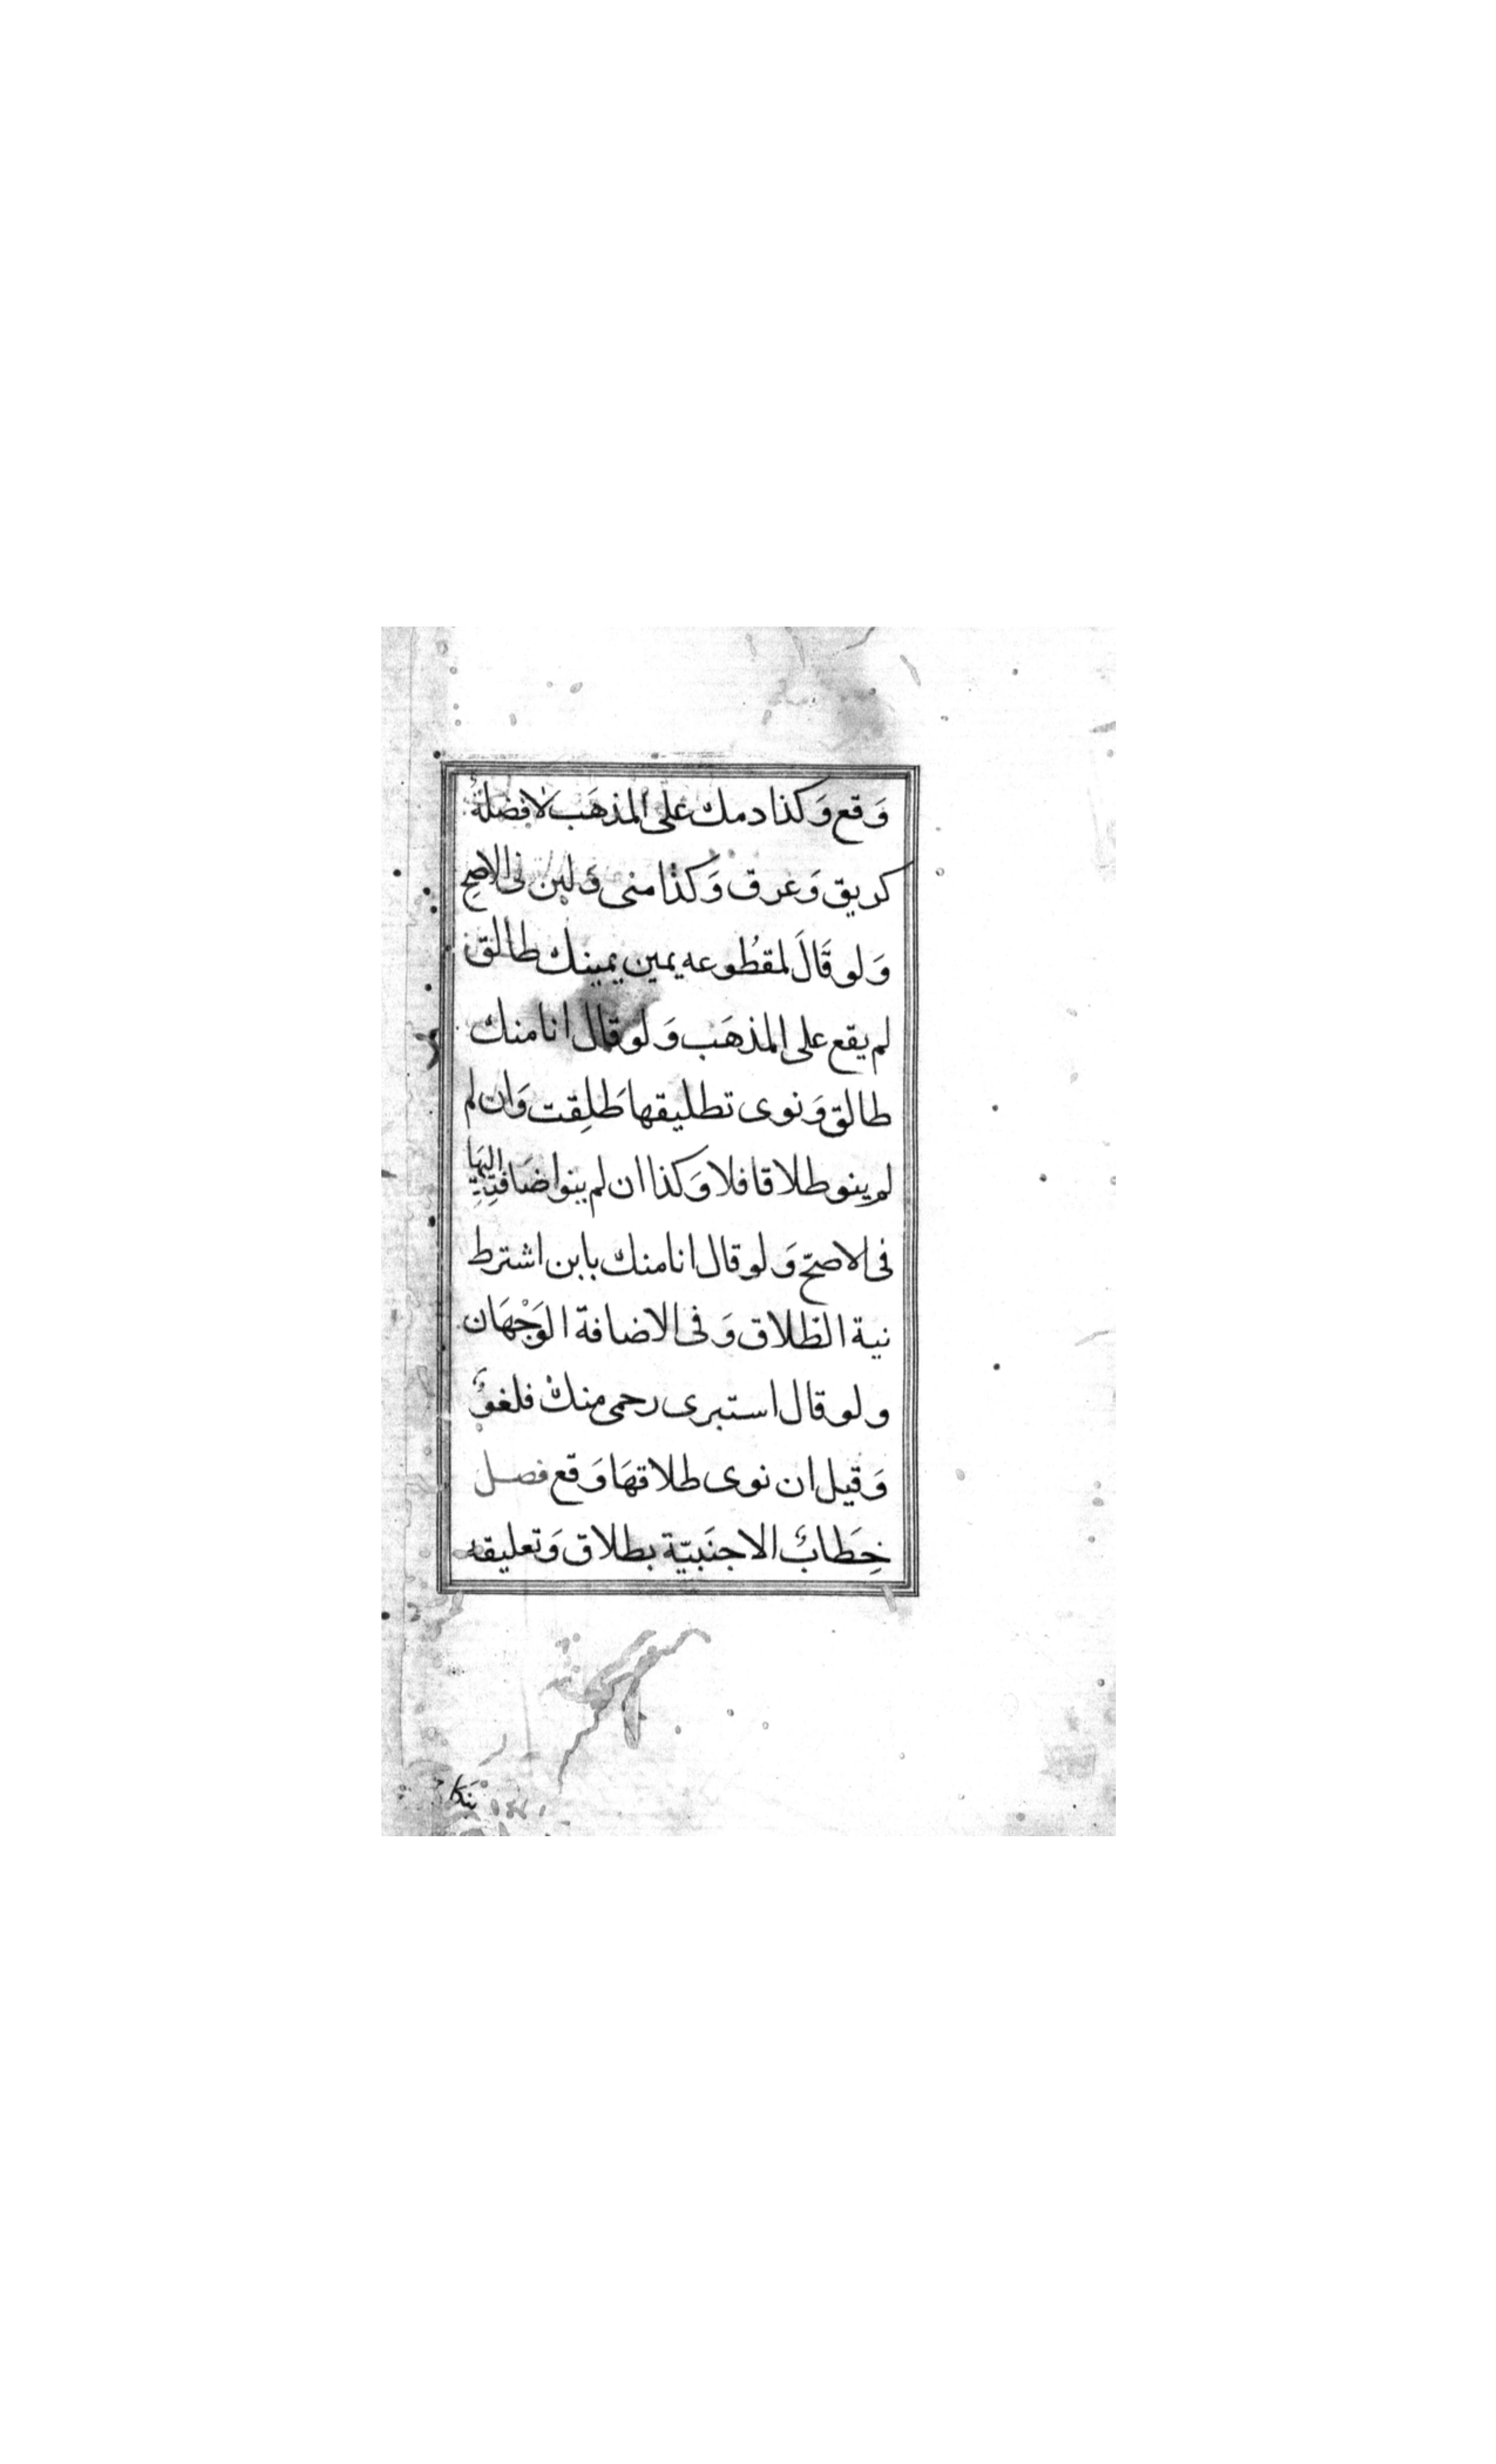 وَقع وَكذا دمك على المذهَب لا فضلةٌ
كريق وَعرق وَكذا منى وَلبن فى الاصح
وَلو قَالَ لمقطُوعه يمين يمينك طالق
لم يقع على المذهَب وَلو قال انا منك
طالق وَنوى تطليقها طَلِقت وَان لم
لم ينو طلاقا فلا وَكذا ان لم ينو اضَافتِه اليهَا
فى الاصحّ وَلو قال انا منك باين اشترط
نية الطلاق وَفى الاضافة الوَجْهَان
ولو قال استبرى رحمى منك فلغوٌ
وَقيل ان نوى طلاقهَا وَقع فصل
خِطَابُ الاجنَبيّة بطلاق وَتعليقه